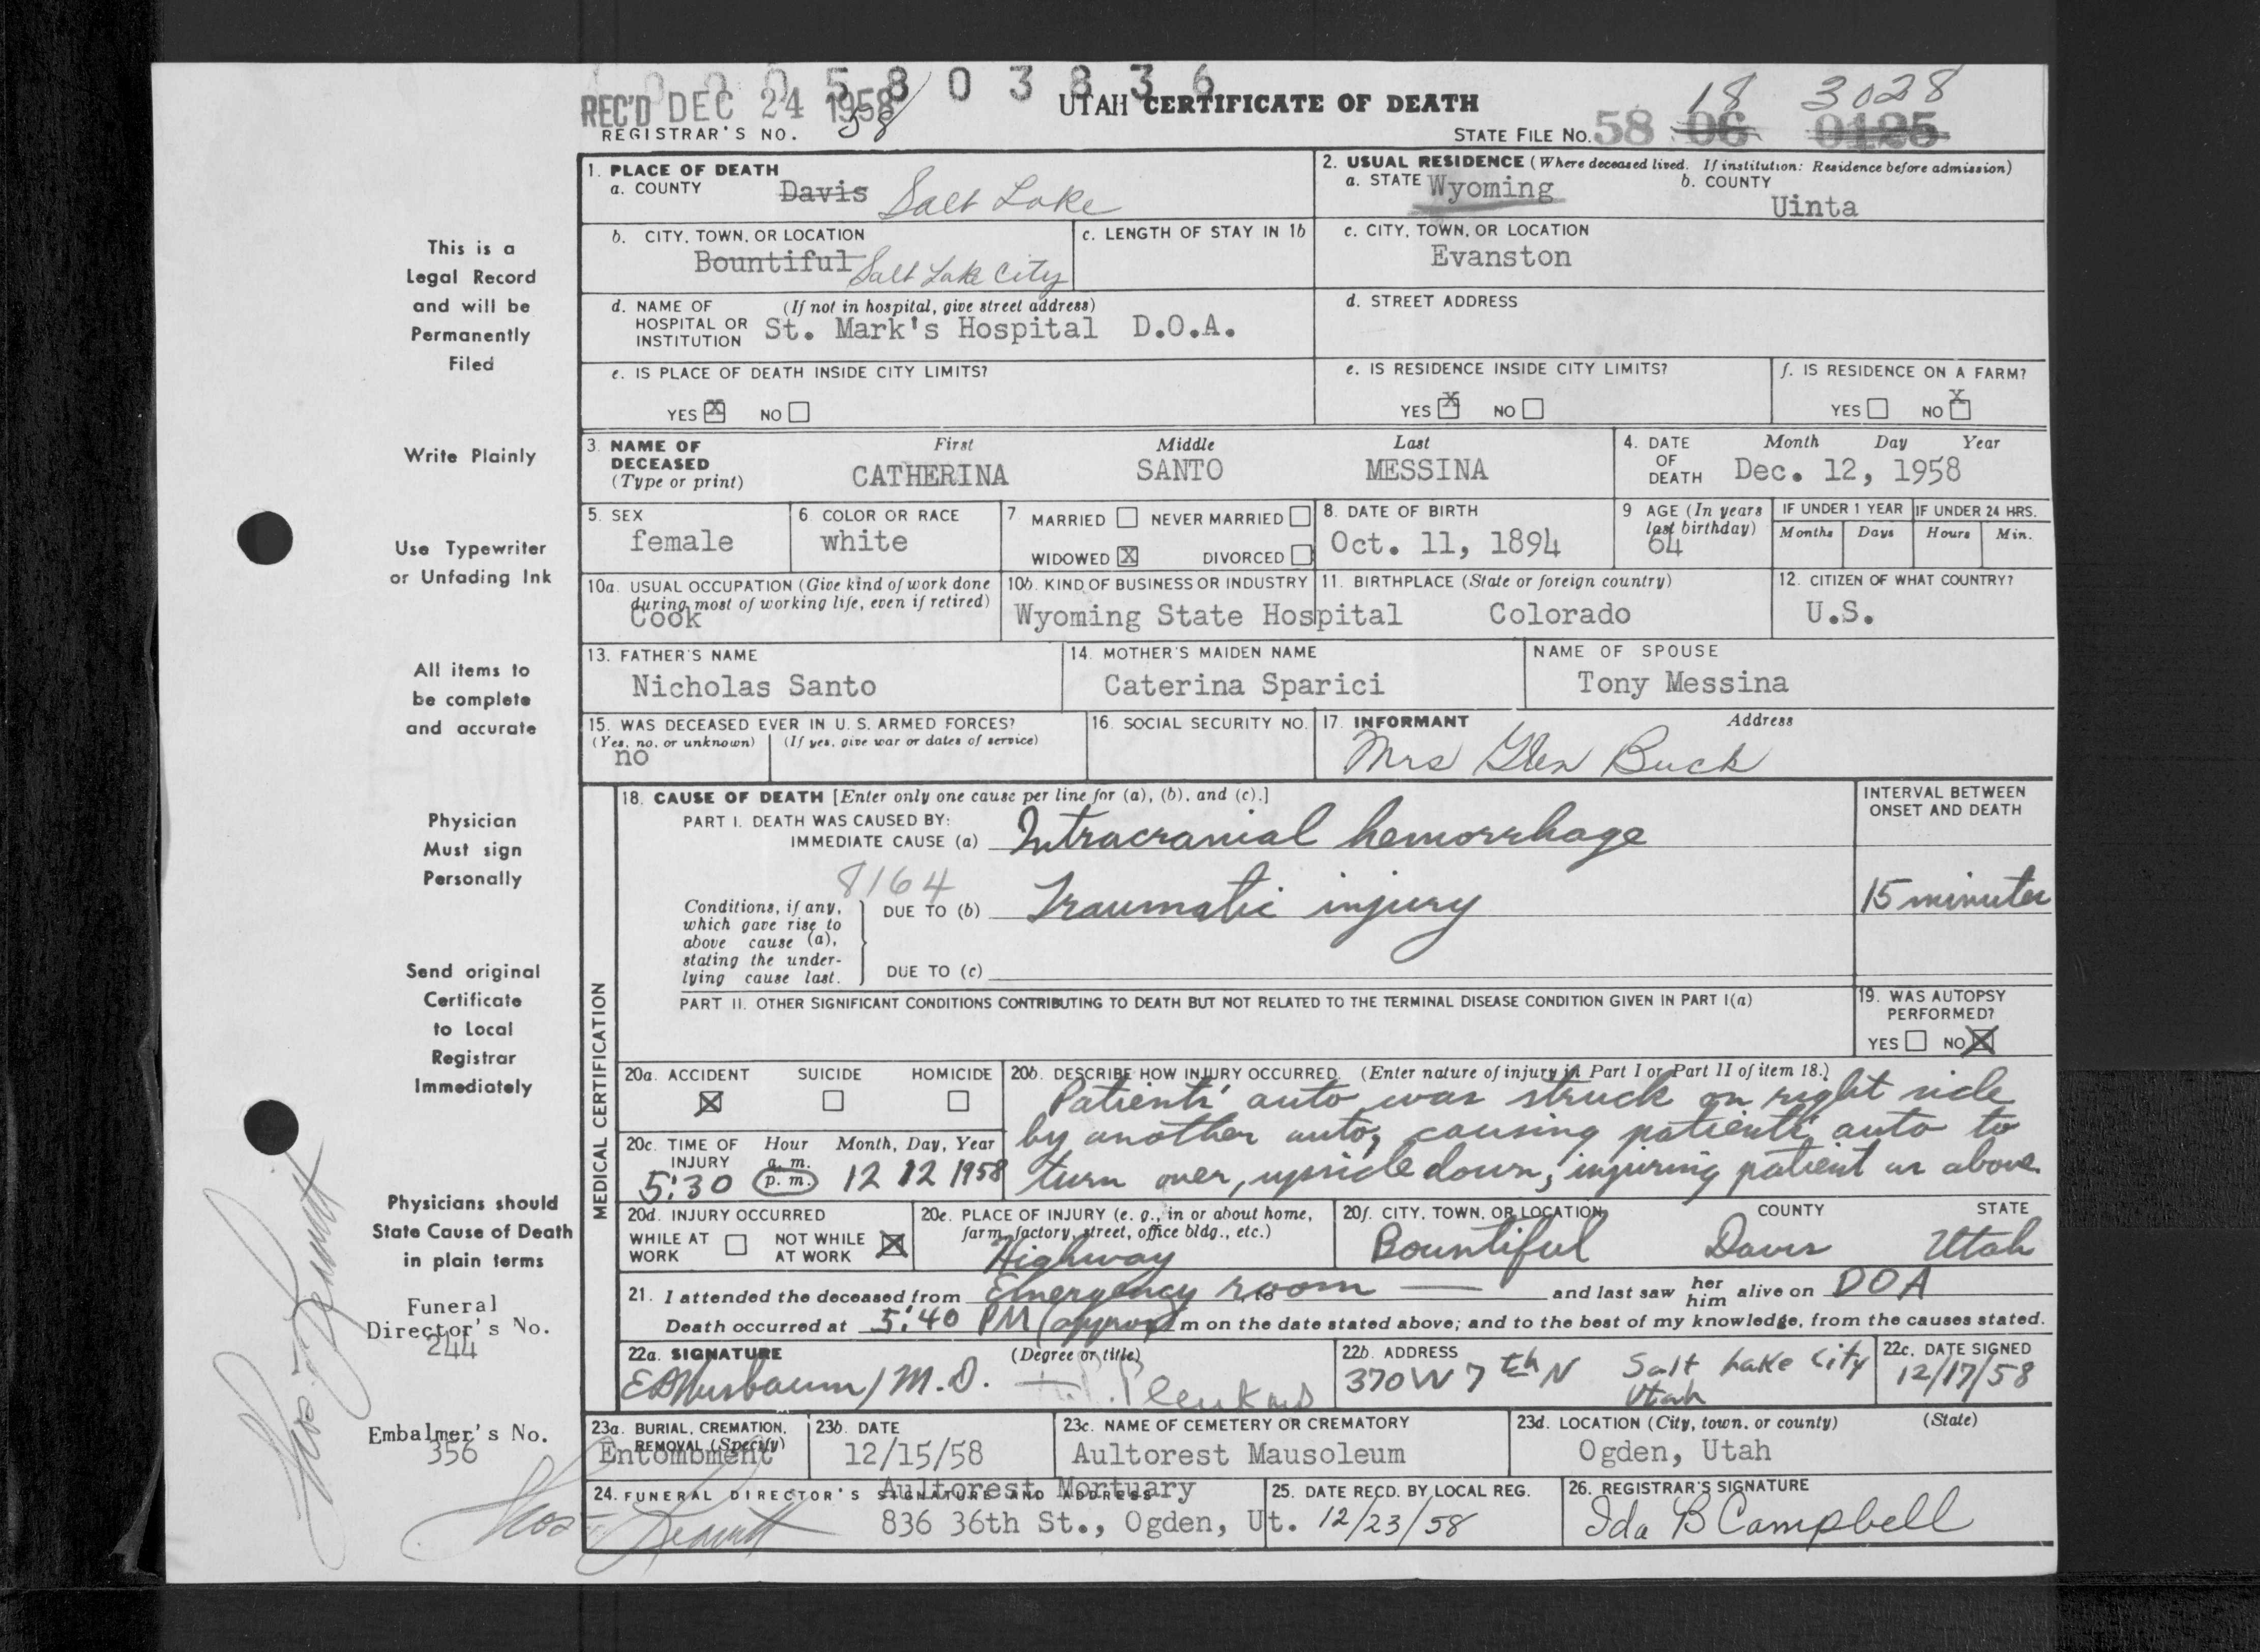 0 0 0 5 8 0 3 8 3 6
REC'D DEC 24 1958
UTAH CERTIFICATE OF DEATH
18 3028
REGISTRAR'S NO. 38
STATE FILE NO. 58 06 0125
1. PLACE OF DEATH
a. COUNTY Davis Salt Lake
2. USUAL RESIDENCE (Where deceased lived. If institution: Residence before admission)
a. STATE Wyoming b. COUNTY Uinta
b. CITY, TOWN, OR LOCATION
Bountiful Salt Lake City
c. LENGTH OF STAY IN 1b
c. CITY, TOWN, OR LOCATION
Evanston
d. NAME OF HOSPITAL OR INSTITUTION (If not in hospital, give street address)
St. Mark's Hospital D.O.A.
d. STREET ADDRESS
e. IS PLACE OF DEATH INSIDE CITY LIMITS?
YES X NO
e. IS RESIDENCE INSIDE CITY LIMITS?
YES X NO
f. IS RESIDENCE ON A FARM?
YES NO X
3. NAME OF DECEASED (Type or print)
First Middle Last
CATHERINA SANTO MESSINA
4. DATE OF DEATH Month Day Year
Dec. 12, 1958
5. SEX
female
6. COLOR OR RACE
white
7. MARRIED NEVER MARRIED
WIDOWED X DIVORCED
8. DATE OF BIRTH
Oct. 11, 1894
9 AGE (In years last birthday)
64
IF UNDER 1 YEAR
Months Days
IF UNDER 24 HRS.
Hours Min.
10a. USUAL OCCUPATION (Give kind of work done during most of working life, even if retired)
Cook
10b. KIND OF BUSINESS OR INDUSTRY
Wyoming State Hospital
11. BIRTHPLACE (State or foreign country)
Colorado
12. CITIZEN OF WHAT COUNTRY?
U.S.
13. FATHER'S NAME
Nicholas Santo
14. MOTHER'S MAIDEN NAME
Caterina Sparici
NAME OF SPOUSE
Tony Messina
15. WAS DECEASED EVER IN U. S. ARMED FORCES?
(Yes, no, or unknown) (If yes, give war or dates of service)
no
16. SOCIAL SECURITY NO.
17. INFORMANT Address
Mrs Glen Buck
MEDICAL CERTIFICATION
18. CAUSE OF DEATH [Enter only one cause per line for (a), (b), and (c).]
INTERVAL BETWEEN ONSET AND DEATH
PART I. DEATH WAS CAUSED BY:
IMMEDIATE CAUSE (a) Intracranial hemorrhage
8164
Conditions, if any, which gave rise to above cause (a), stating the underlying cause last.
DUE TO (b) Traumatic injury
15 minutes
DUE TO (c)
PART II. OTHER SIGNIFICANT CONDITIONS CONTRIBUTING TO DEATH BUT NOT RELATED TO THE TERMINAL DISEASE CONDITION GIVEN IN PART I(a)
19. WAS AUTOPSY PERFORMED?
YES NO X
20a. ACCIDENT SUICIDE HOMICIDE
X
20b. DESCRIBE HOW INJURY OCCURRED. (Enter nature of injury in Part I or Part II of item 18.)
Patient's auto was struck on right side
by another auto, causing patient's auto to
turn over, upside down, injuring patient as above.
20c. TIME OF INJURY Hour Month, Day, Year
a. m.
5:30 p. m. 12 12 1958
20d. INJURY OCCURRED
WHILE AT WORK NOT WHILE AT WORK X
20e. PLACE OF INJURY (e. g., in or about home, farm, factory, street, office bldg., etc.)
Highway
20f. CITY, TOWN, OR LOCATION COUNTY STATE
Bountiful Davis Utah
21. I attended the deceased from Emergency room to and last saw her him alive on DOA
Death occurred at 5:40 PM (approx) m on the date stated above; and to the best of my knowledge, from the causes stated.
22a. SIGNATURE (Degree or title)
M.D.
22b. ADDRESS
370 W 7th N Salt Lake City
Utah
22c. DATE SIGNED
12/17/58
23a. BURIAL, CREMATION, REMOVAL (Specify)
Entombment
23b. DATE
12/15/58
23c. NAME OF CEMETERY OR CREMATORY
Aultorest Mausoleum
23d. LOCATION (City, town, or county) (State)
Ogden, Utah
24. FUNERAL DIRECTOR'S SIGNATURE AND ADDRESS
Aultorest Mortuary
836 36th St., Ogden, Ut.
25. DATE RECD. BY LOCAL REG.
12/23/58
26. REGISTRAR'S SIGNATURE
Ida B Campbell
This is a
Legal Record
and will be
Permanently
Filed
Write Plainly
Use Typewriter
or Unfading Ink
All items to
be complete
and accurate
Physician
Must sign
Personally
Send original
Certificate
to Local
Registrar
Immediately
Physicians should
State Cause of Death
in plain terms
Funeral
Director's No.
244
Embalmer's No.
356